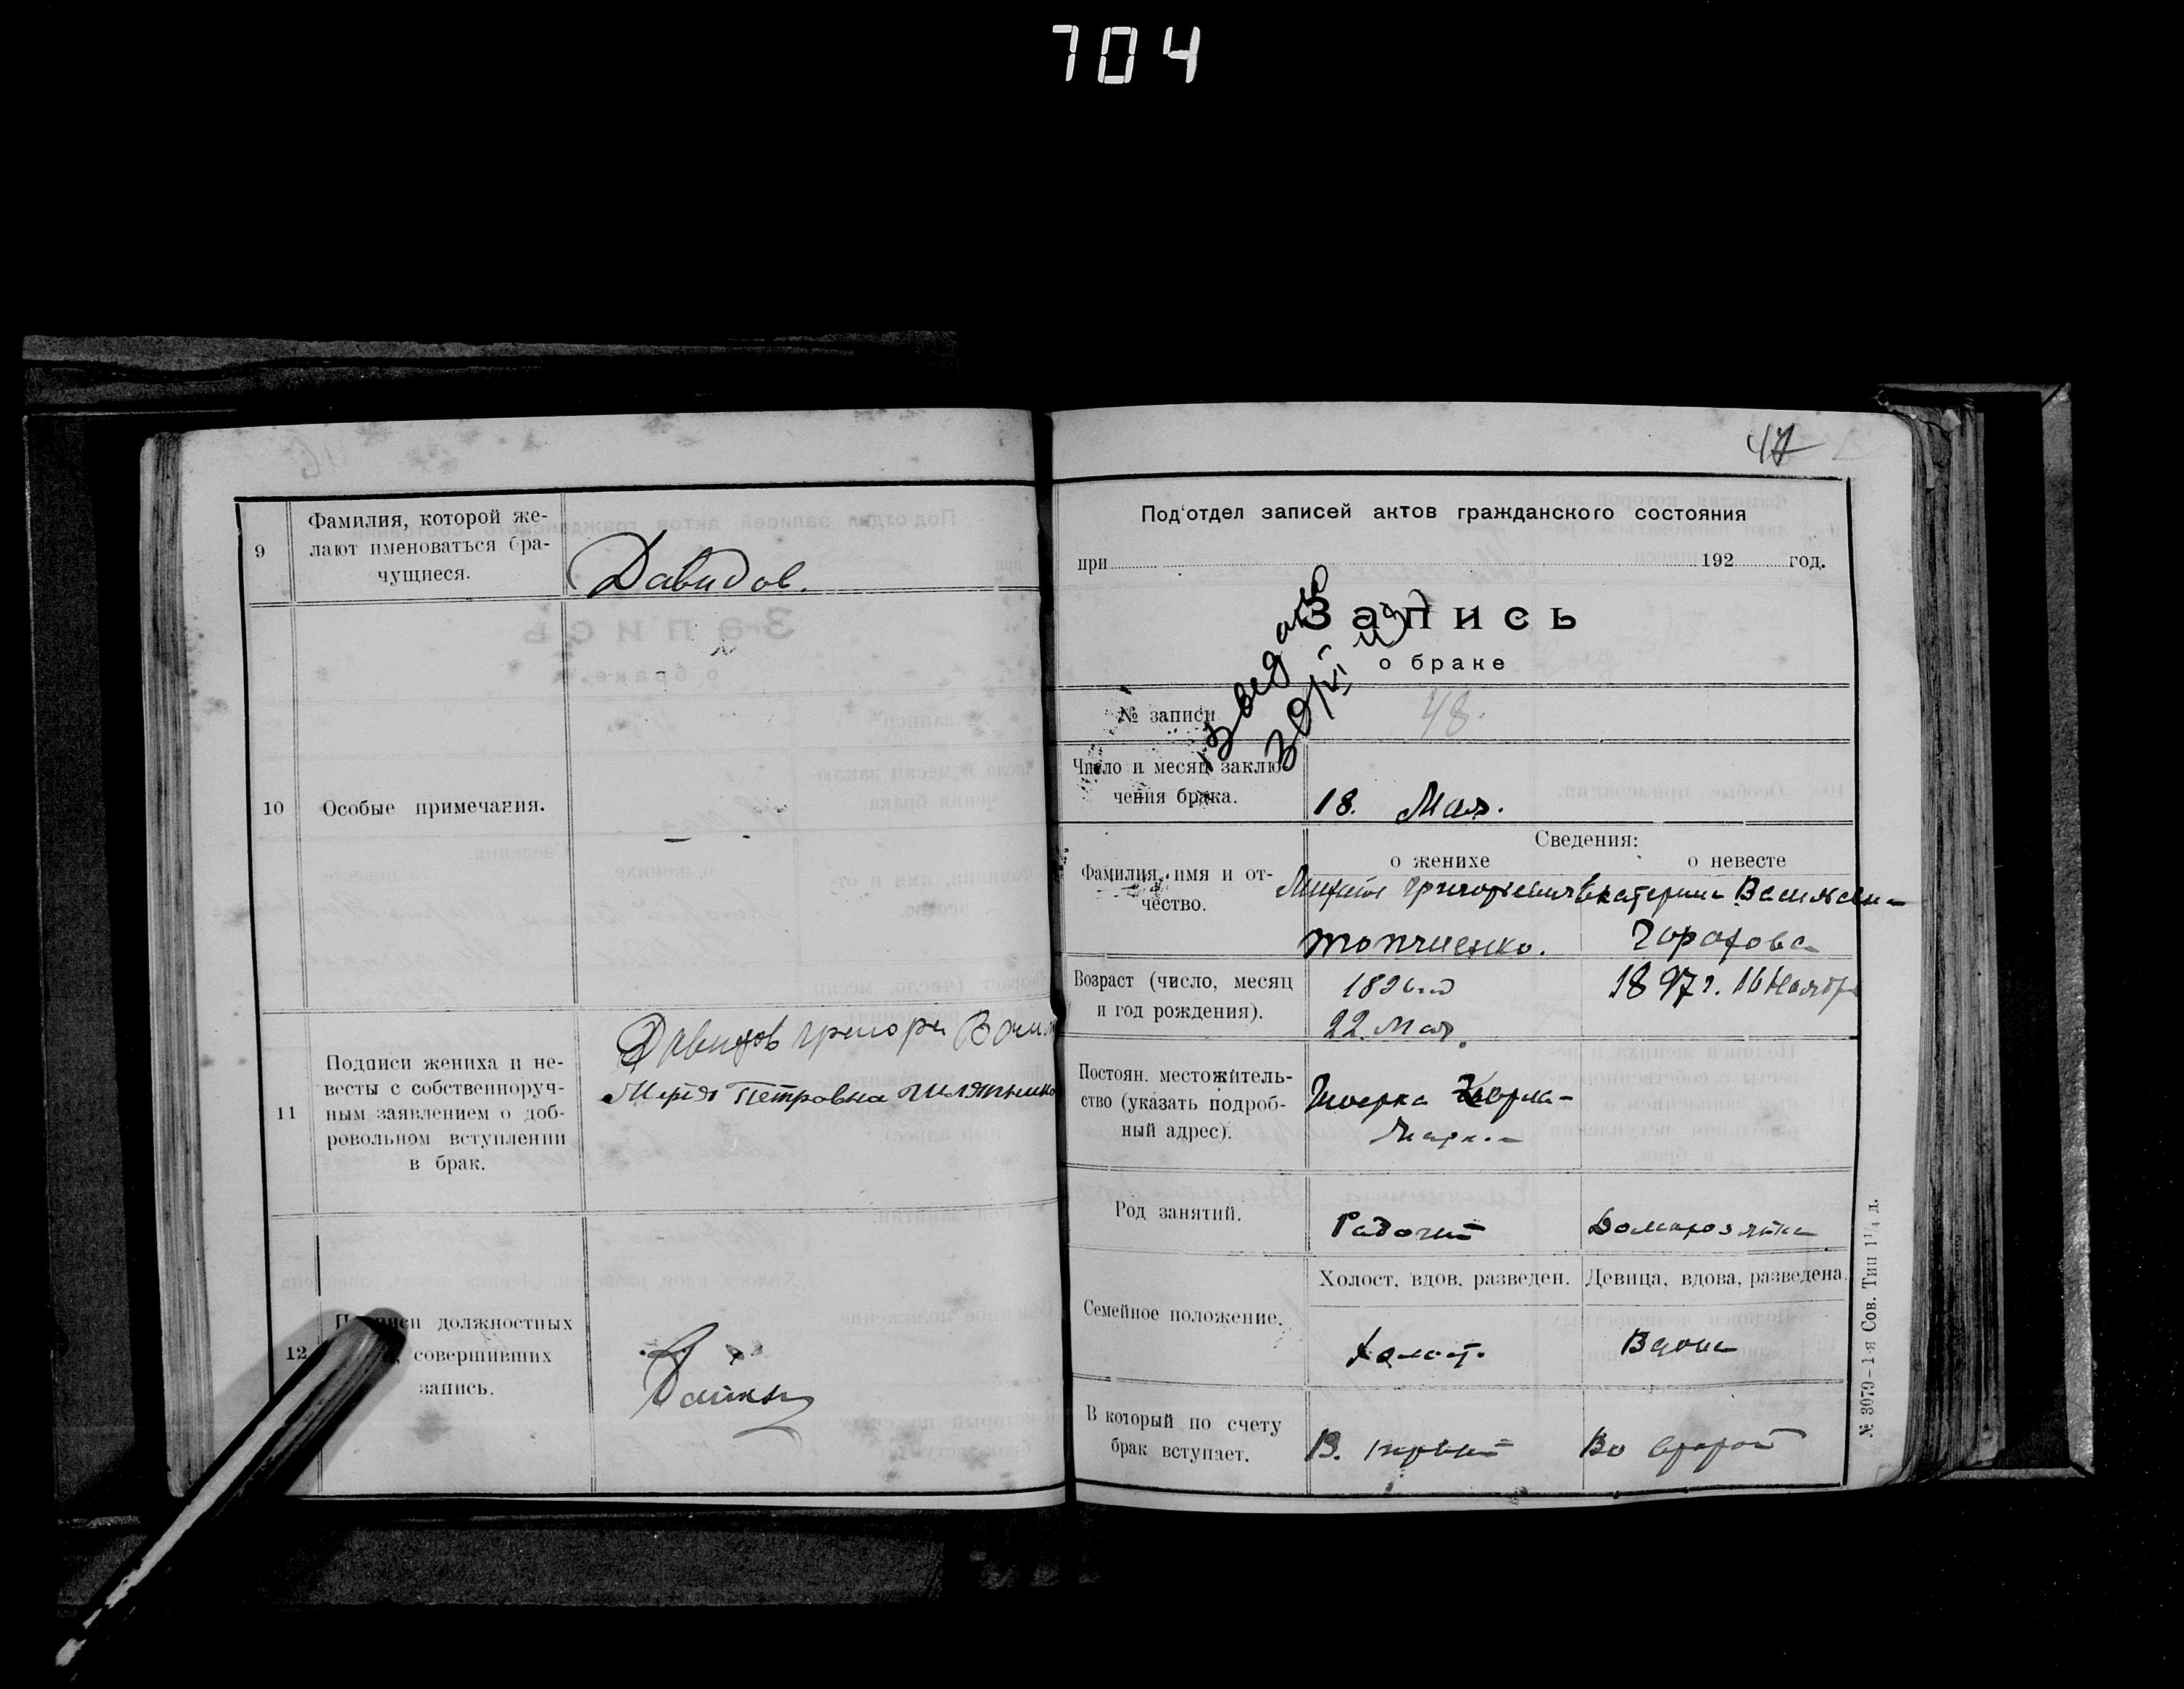 704
9
Фамилия, которой же-
лают именоваться бра-
чущиеся.
Давидов.
10
Особые примечания.
11
Подписи жениха и не-
весты с собственноруч-
ным заявлением о доб-
ровольном вступлении
в брак.
Давидов Григори
Петровна
12
должностных
совершивших
запись.
47
Под'отдел записей актов гражданского состояния
при 192 год.
Запись
о браке
№ записи
48.
Число и месяц заклю-
чения брака.
18. Мая.
Сведения:
о женихе
о невесте
Фамилия, имя и от-
чество.
Михаил Григорьевич
Топчиенко.
Екатерина Васильевна
Горохова
Возраст (число, месяц
и год рождения).
22 Мая.
1897 г. 16 Ноября
Постоян. местожитель-
ство (указать подроб-
ный адрес).
Род занятий.
Рабочий
Домарозятка
Семейное положение.
Холост, вдов, разведен.
Девица, вдова, разведена.
Холост.
Вдова
В который по счету
брак вступает.
В. первый
Во второй
№ 3079-1-я Сов. Тип 1¼ д.